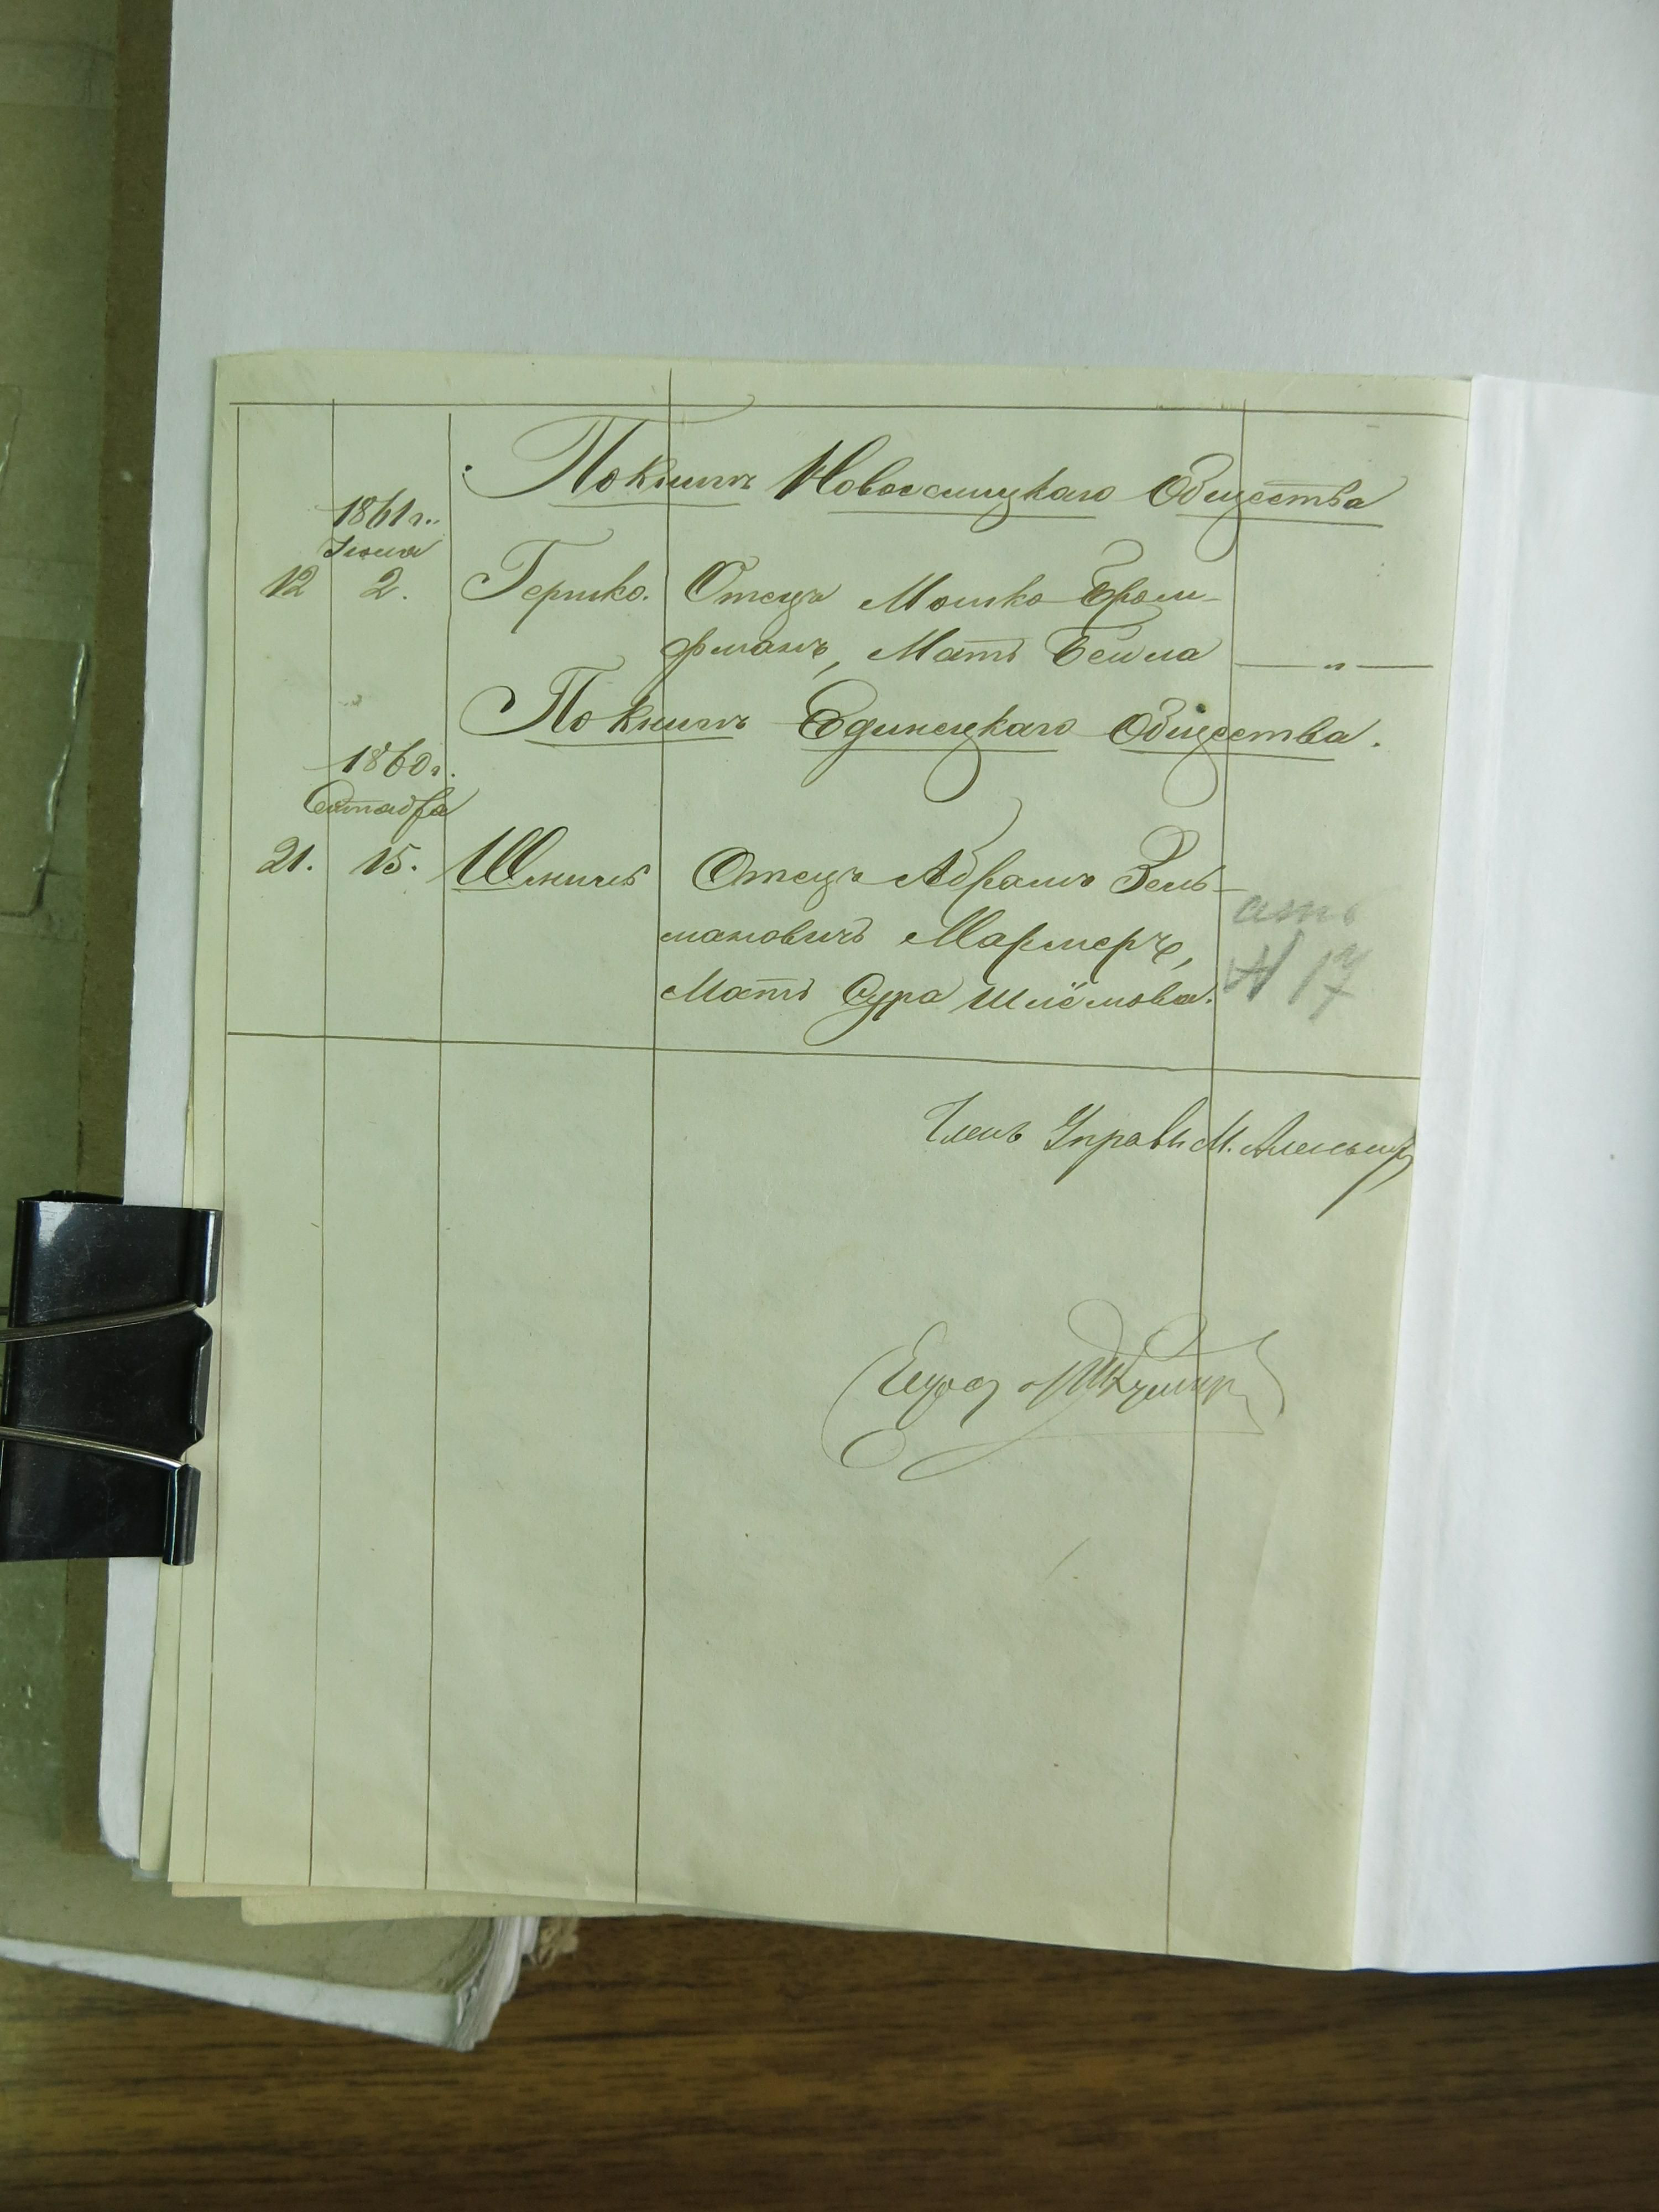 По книгѣ Новоселицкаго Общества
1861 г.
Іюля
12 2. Гершко. Отецъ Мошко Бром-
фманъ, Мать Бейла — „ —
По книгѣ Единецкаго Общества.
1860 г.
Сентября
21. 15. Отецъ Абрамъ Зель-
мановичъ Мармеръ,
Мать Сура Шлёмова.
№ 17
Членъ Управы М.